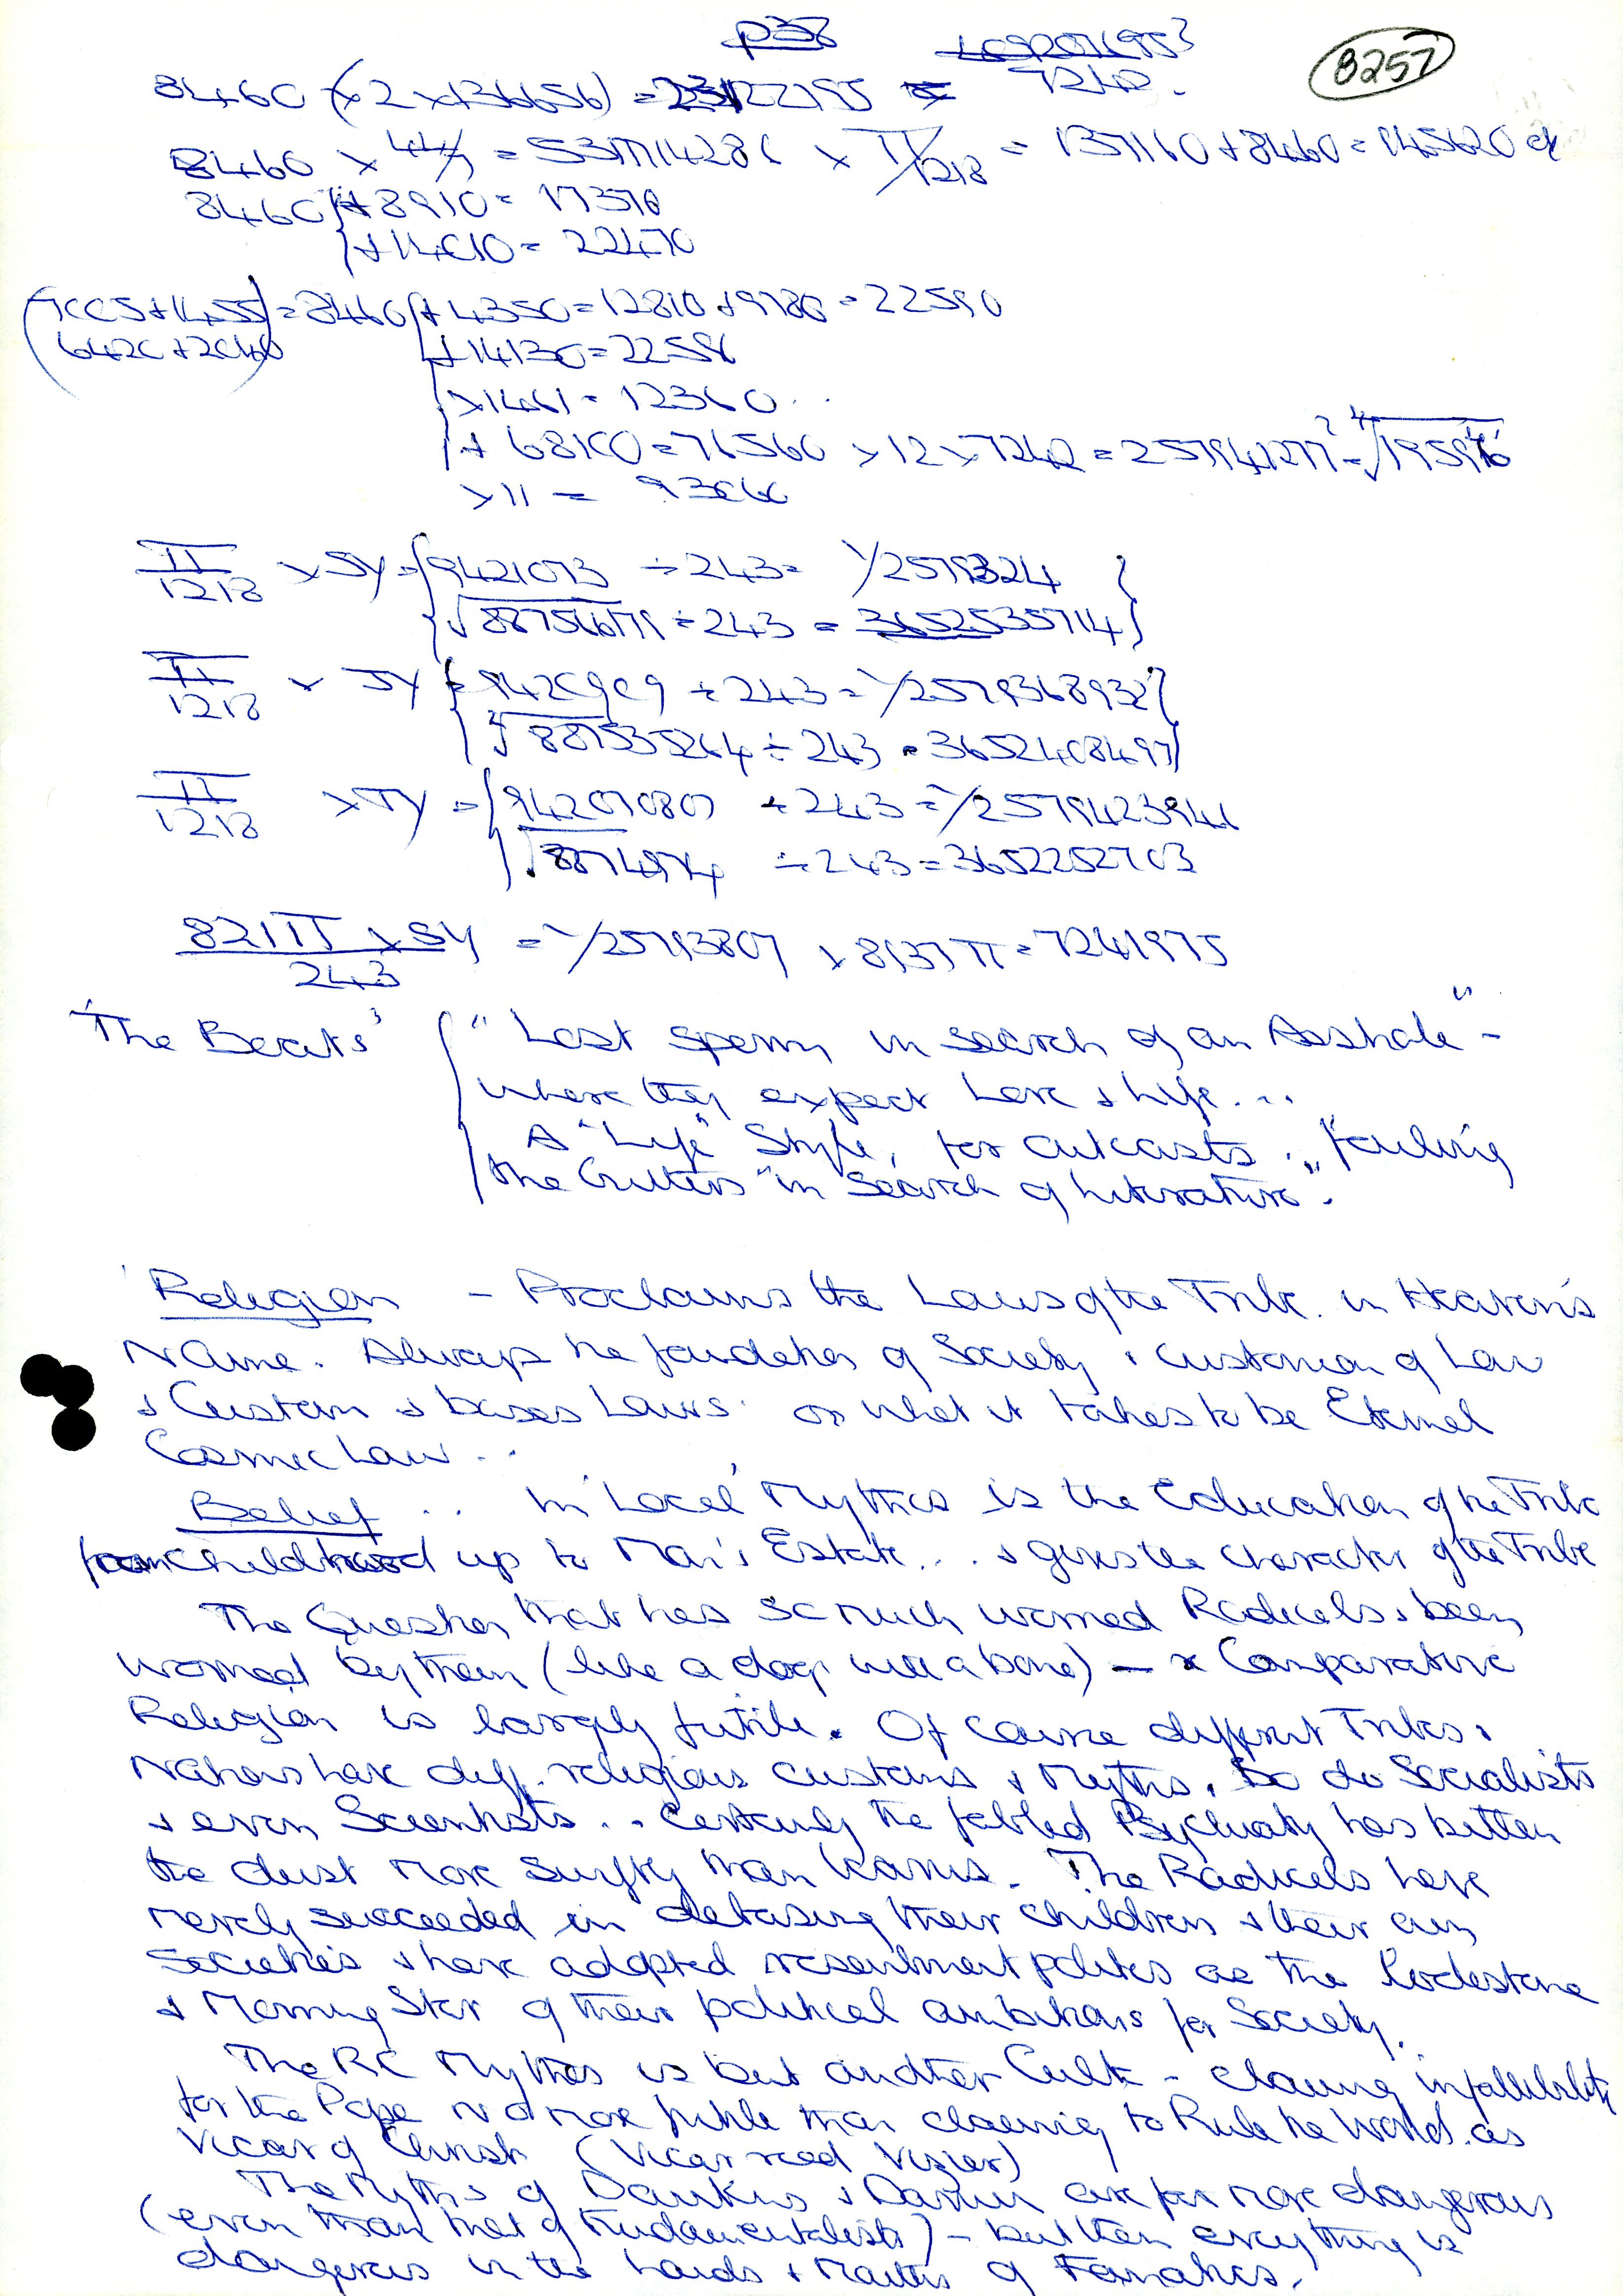 p38
8257
7240.
8460 (x 2 x 136656) = 23122195
8460 x 44/7 = 5317714286 x π/1218 = 137160 + 8460 = 145620
8460 + 8910 = 17370
+ 14010 = 22470
(7005 + 1455) = 8460 + 4350 = 12810 + 9780 = 22590
(6420 + 2040)
+ 14130 = 22590
x 1461 = 12360
+ 68100 = 76560 x 12 x 7240 =
x 11 = 93060
π/1218 x SY = 9421073 ÷ 243 = 1/2579324
÷ 243 = 3652535714
π/1218 x JY = 9420909 ÷ 243 = 1/2579368932
√887535264 ÷ 243 = 3652408497
π/1218 x TY = 942070807 ÷ 243 = 1/2579423946
÷ 243 = 3652252703
821π x SY / 243 = 1/25793807 x 8937 π = 7241975
'The Beats' "Lost sperm in search of an Asshole" -
where they expect Love & Life...
A "Life" Style, for Outcasts ... "fouling
the Gutters" in Search of Literature".
Religion - Proclaims the Laws of the Tribe in Heaven's
Name. Always the foundation of Society & custodian of Law
& Custom & bases Laws on what it takes to be Eternal
Cosmic Law...
Belief .. in 'Local' Mythos is the Education of the Tribe
from childhood up to Man's Estate... & gives the character of the Tribe
The Question that has so much worried Radicals & been
worried by them (like a dog with a bone) - Comparative
Religion is largely futile. Of course different Tribes &
Nations have diff. religious customs & Myths. So do Socialists
& even Scientists... Certainly the fabled Psychiatry has bitten
the dust more swiftly than Icarus. The Radicals have
merely succeeded in debasing their children & their own
Societies & have adopted resentment politics as the Lodestone
& Morning Star of their political ambitions for Society.
The RC Mythos is but another Cult - claiming infallibility
for the Pope no more futile than claiming to Rule the World as
Vicar of Christ (Vicar read Vizier)
The Myths of Dawkins & Darwin are far more dangerous
(even than that of Fundamentalists) - but then everything is
dangerous in the hands & Mouths of Fanatics.